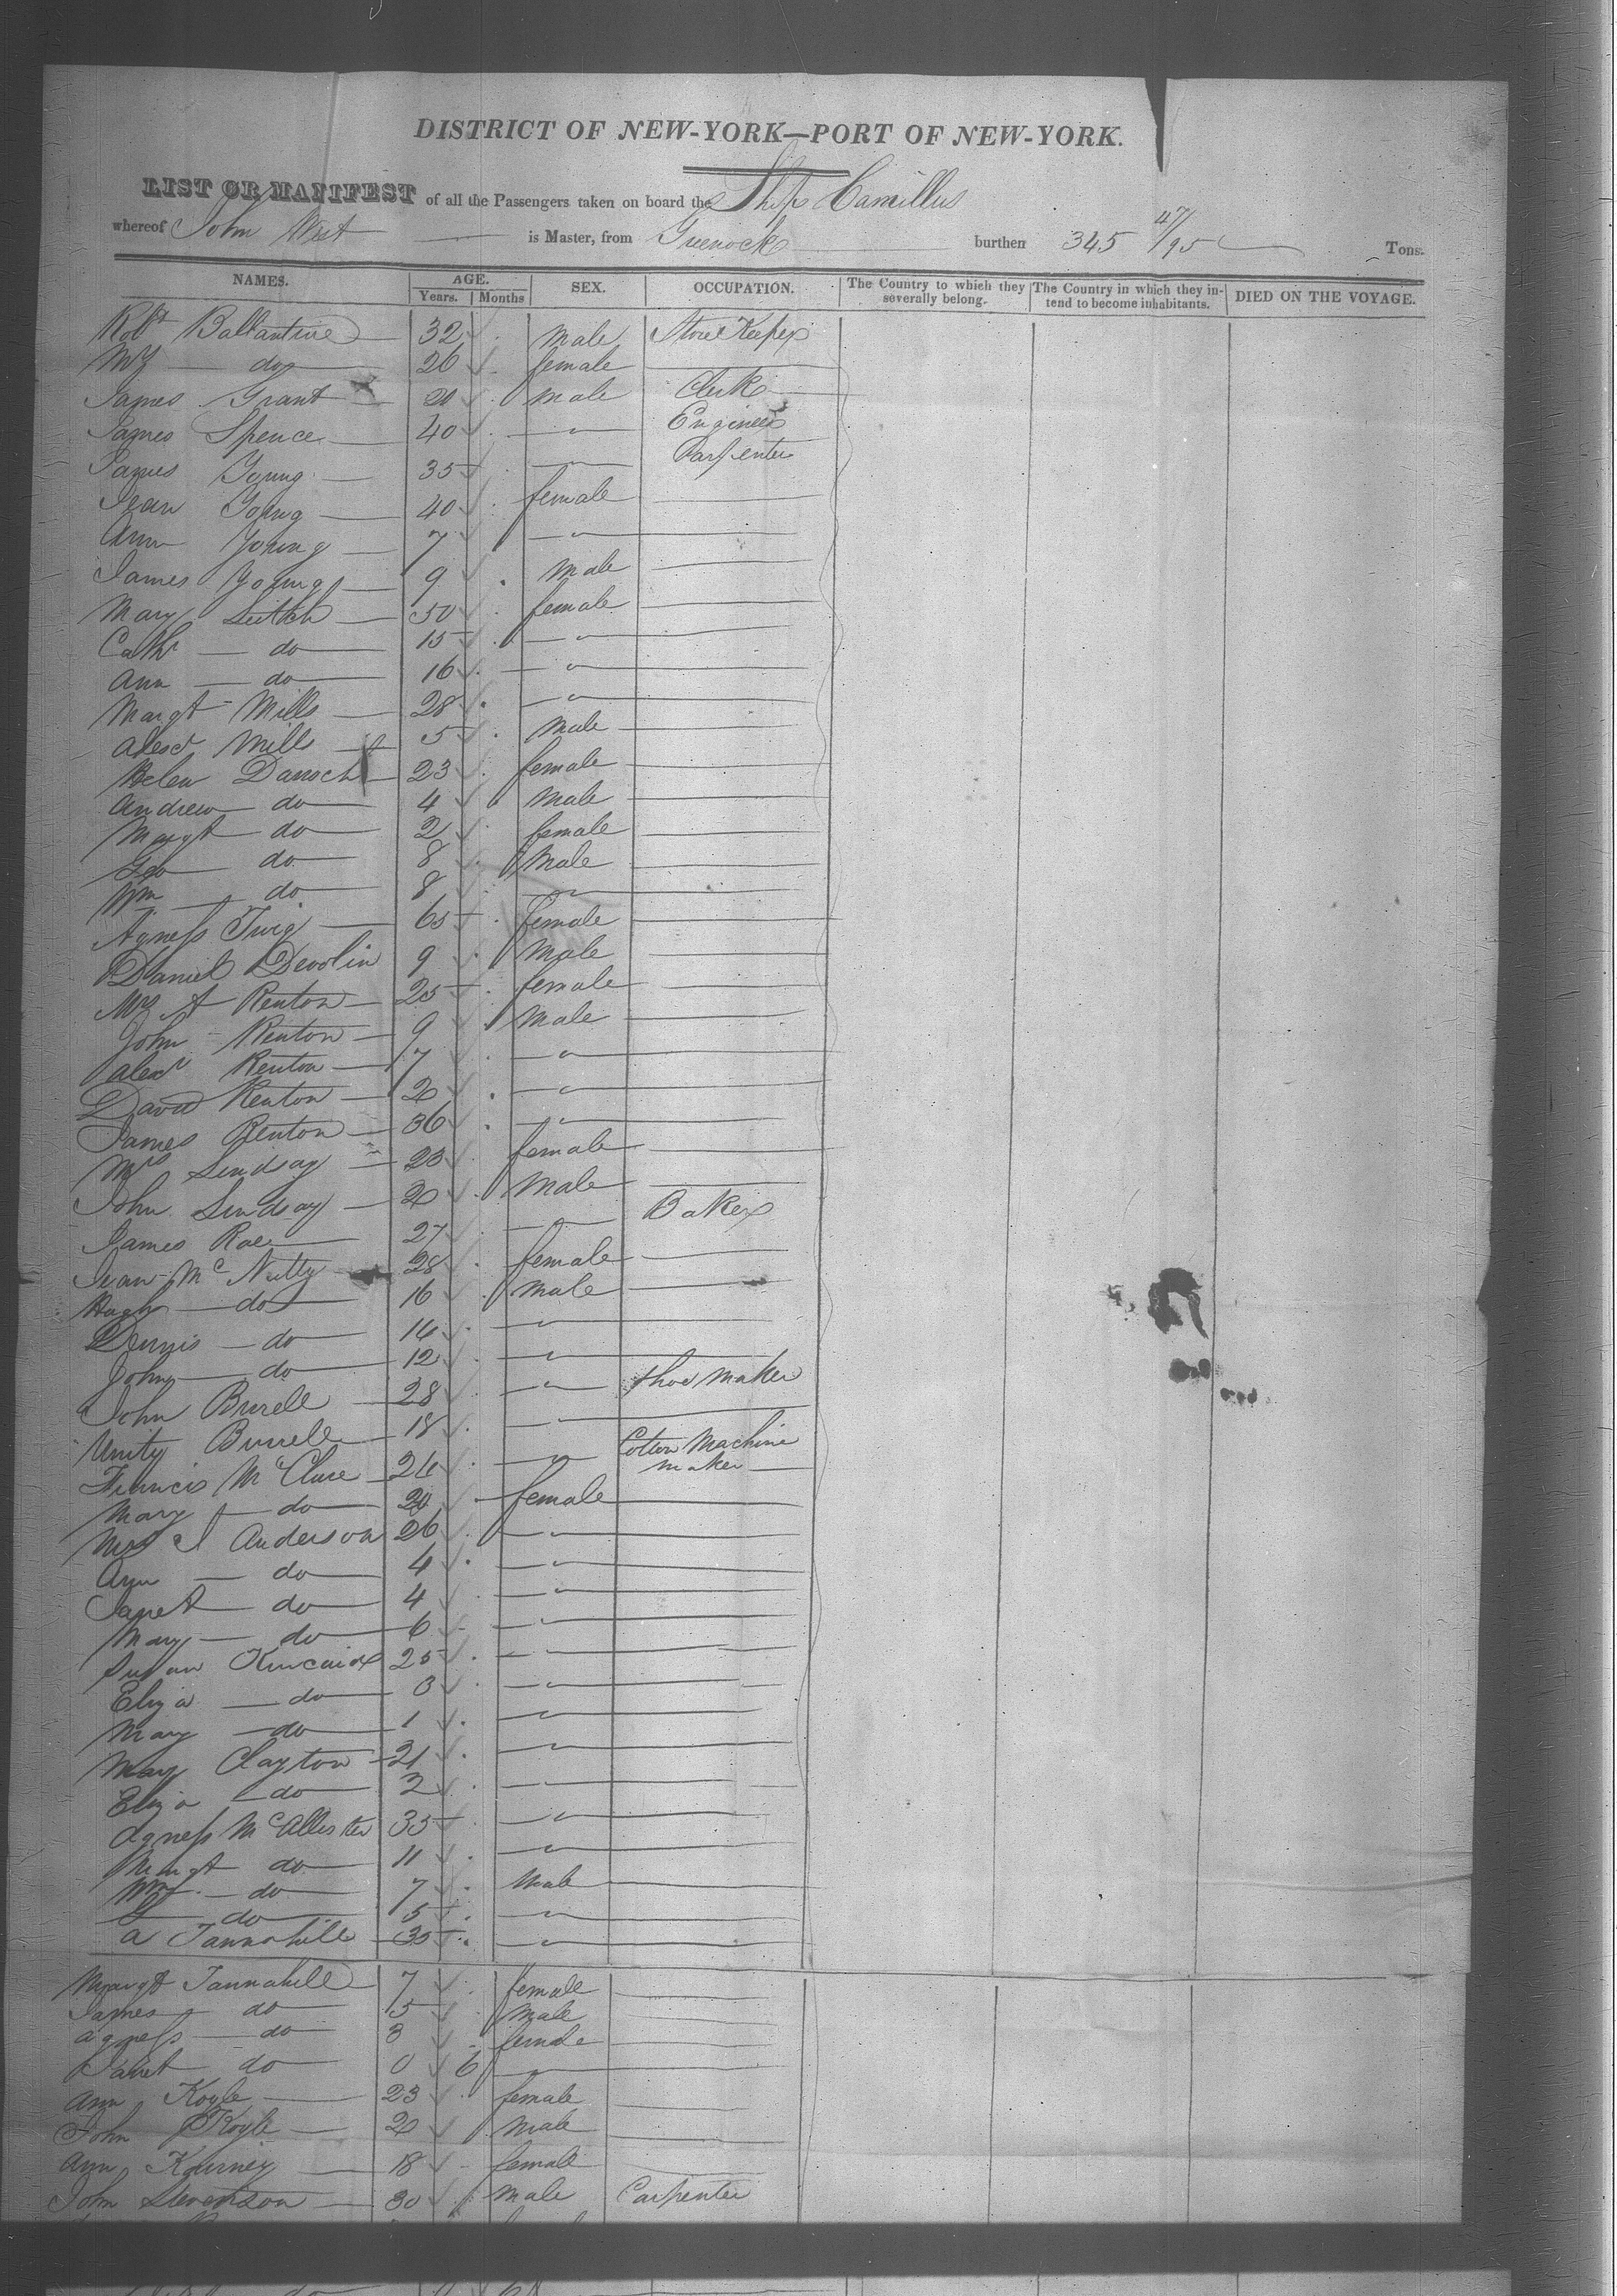 DISTRICT OF NEW-YORK—PORT OF NEW-YORK.
LIST OR MANIFEST of all the Passengers taken on board the Ship Camillus
whereof John West is Master, from Greenock burthen 345 47/95 Tons.
NAMES. AGE. Years. Months SEX. OCCUPATION. The Country to which they severally belong. The Country in which they intend to become inhabitants. DIED ON THE VOYAGE.
Robt Ballantine 32 male Store Keeper
Mrs do 26 female
James Grant 21 male Clerk
James Spence 40 " Engineer
James Young 35 " Carpenter
Jean Young 40 female
Ann Young 7 "
James Young 9 male
Mary Leitch 50 female
Cathr do 15 "
Ann do 16 "
Margt Mills 28 "
Alexr Mills 5 male
Helen Darroch 23 female
Andrew do 4 male
Margt do 2 female
Geo do 8 male
Wm do 8 "
Agness Twig 65 female
Daniel Devolin 9 male
Mrs A Renton 25 female
John Renton 9 male
Alexr Renton 7 "
David Renton 2 "
James Renton 36 "
Mrs Lindsay 23 female
John Lindsay 20 male
James Rae 27 " Baker
Jean McNulty 28 female
Hugh do 16 male
Dennis do 14 "
John do 12 "
John Burell 28 " Shoe maker
Unity Burrell 18 "
Francis McClure 24 " Cotton Machine maker
Mary do 20 female
Mrs J Anderson 26 "
Ann do 4 "
Janet do 4 "
Mary do 6 "
Susan Kincaid 25 "
Eliza do 3 "
Mary do 1 "
Mary Clayton 21 "
Eliza do 2 "
Agness McAllister 35 "
Margt do 11 "
Wm do 7 male
do 5 "
A Tannahill 35 "
Margt Tannahill 7 female
James do 5 male
Agness do 3 female
Janet do 0 6 "
Ann Koyle 23 female
John Koyle 20 male
Ann Kurney 18 female
John Stevenson 30 male Carpenter